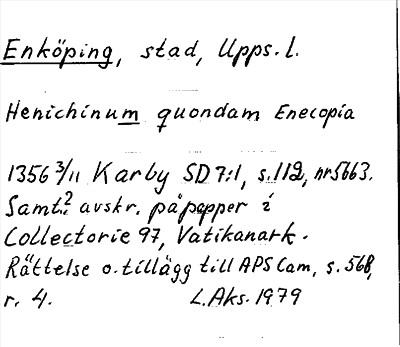 Enköping, stad, Upps. l.
Henichinum quondam Enecopia
1356 3/11 Karby SD 7:1, s. 112, nr 5663.
Samt.? avskr. på papper i
Collectorie 97, Vatikanark.
Rättelse o. tillägg till APS Cam, s. 568,
r. 4. L. Aks. 1979